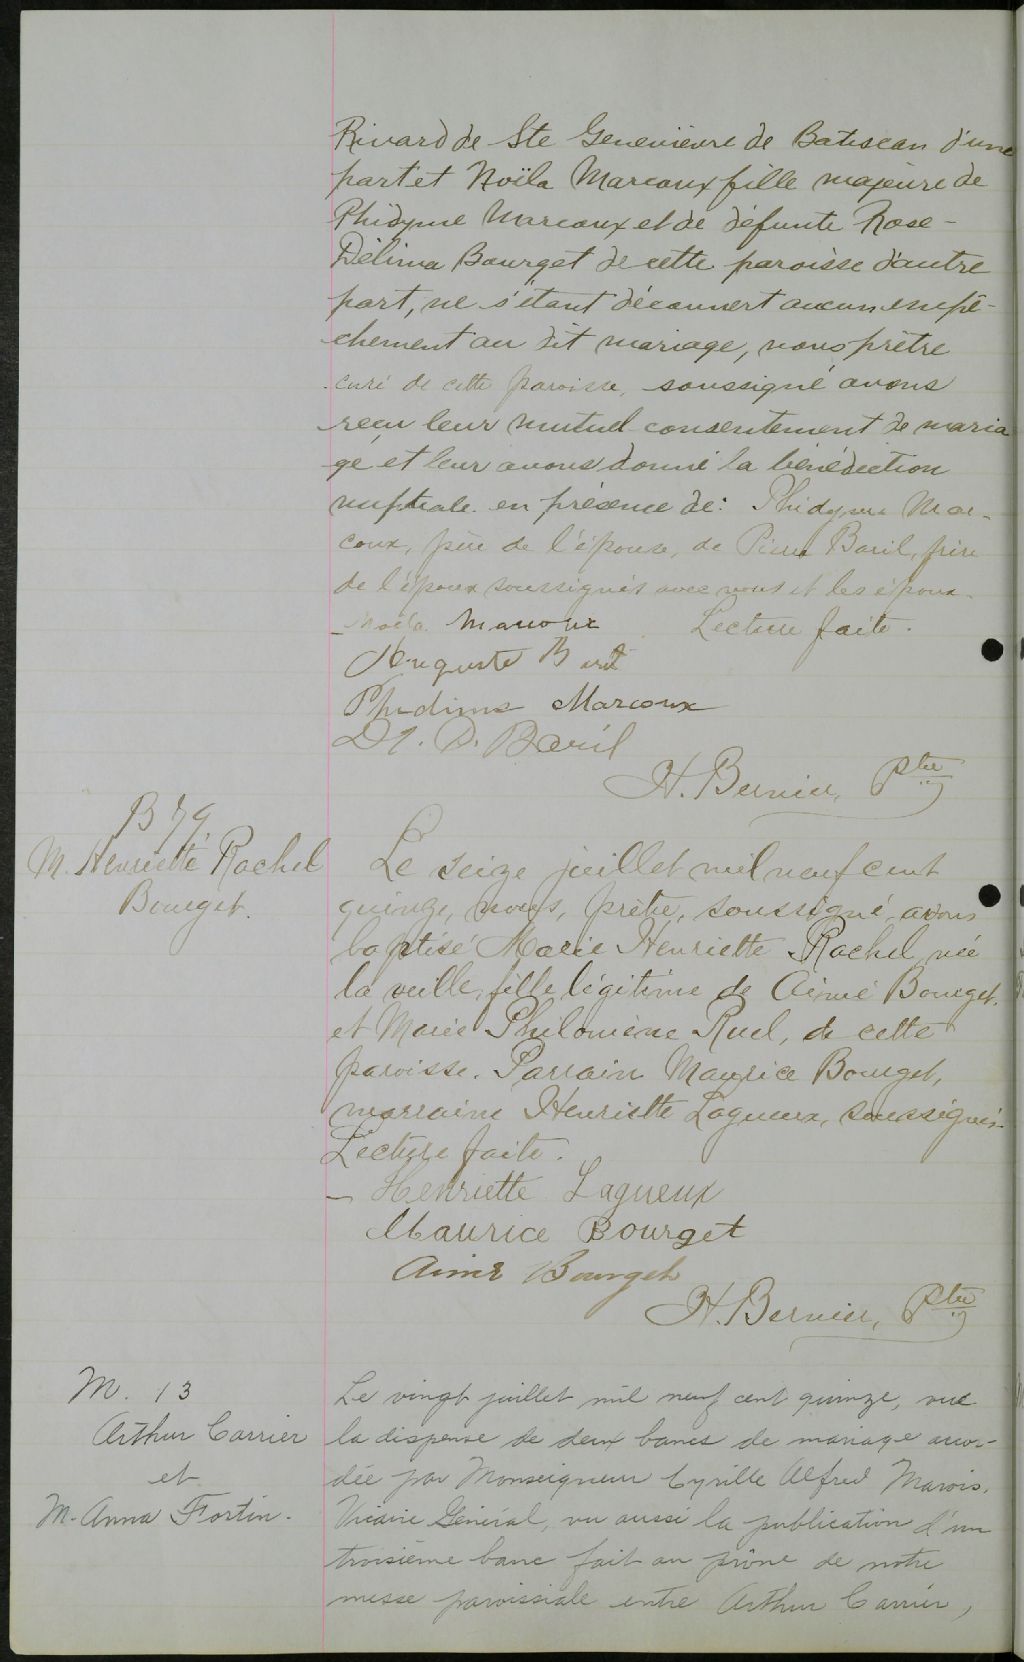 Rivard de Ste Geneviève de Batiscan d'une
part et Noëla Marcoux fille majeure de
Phidyme Marcoux et de défunte Rose-
Délima Bourget de cette paroisse d'autre
part, ne s'étant découvert aucun empê-
chement au dit mariage, nous prêtre
curé de cette paroisse, soussigné avons
reçu leur mutuel consentement de maria
ge et leur avons donné la bénédiction
nuptiale en présence de: Phidyme Mar-
coux, père de l'épouse, de Pierre Baril, frère
de l'époux soussignés avec nous et les époux.
Noëla Marcoux Lecture faite.
Auguste Baril
Phidime Marcoux
D. Baril
H. Bernier, Ptre
B 79
M. Henriette Rachel
Bourget.
Le seize juillet mil neuf cent
quinze, nous, prêtre, soussigné, avons
baptisé Marie Henriette Rachel, née
la veille, fille légitime de Aimé Bourget
et Marie Philomène Ruel, de cette
paroisse. Parrain Maurice Bourget,
marraine Henriette Lagueux, soussignés.
Lecture faite.
Henriette Lagueux
Maurice Bourget
Aimé Bourget
H. Bernier, Ptre
M. 13
Arthur Carrier
et
M. Anna Fortin.
Le vingt juillet mil neuf cent quinze, vue
la dispense de deux bancs de mariage accor-
dée par Monseigneur Cyrille Alfred Marois,
Vicaire Général, vu aussi la publication d'un
troisième banc fait au prône de notre
messe paroissiale entre Arthur Carrier,